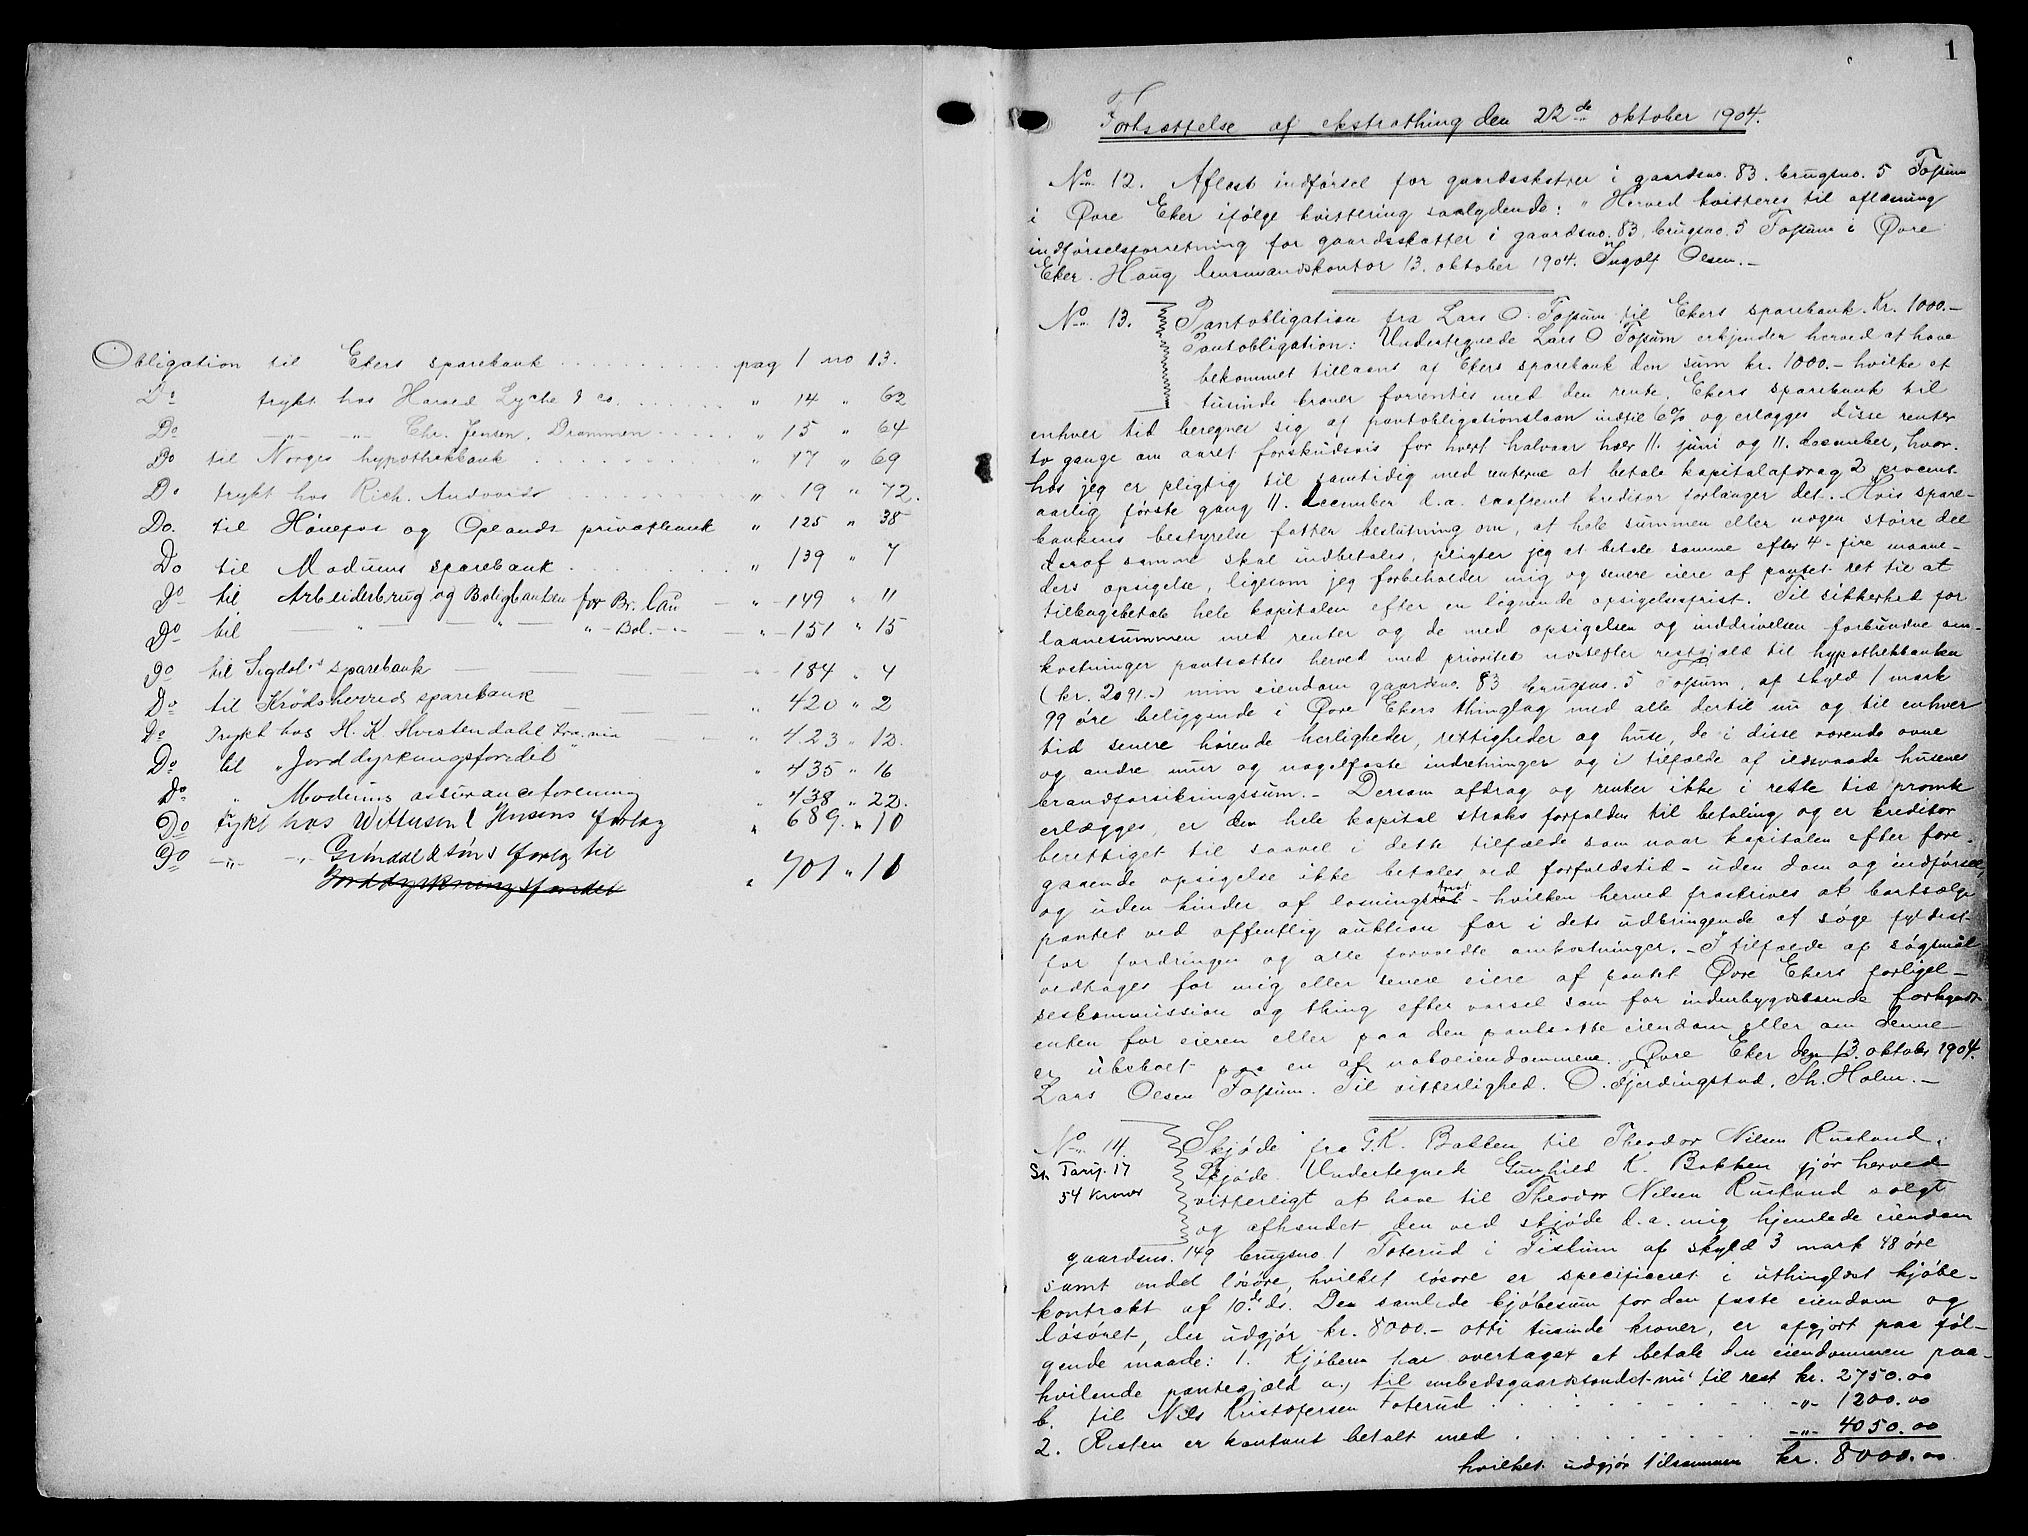 Obligation til Ekers sparebank . . . . . . . . . . pag 1 no 13.
Do trykt hos Harald Lyche & co. . . . . . . " 14 " 62
Do —"— —"— Chr. Jensen, Drammen . . . . . " 15 " 64
Do til Norges hypothekbank . . . . . . . . . " 17 " 69
Do trykt hos Rich. Andvords . . . . . . . . " 19 " 72.
Do. til Hønefos og Oplands privatbank " 125 " 38
Do til Modums sparebank . . . . . . . " 139 " 7
Do til Arbeiderbrug og Boligbanken for Br. Lån — " — 149 " 11
Do til — " — " — " — Bol. — " — " — 151 " 15
Do til Sigdals sparebank — — — " 184 " 4
Do til Krødsherred sparebank — — " 420 " 2
Do Trykt hos H. K. Hvistendahl — — " 423 " 12.
Do til "Jorddyrkningsfondet" " 435 " 16
Do " Modums assuranceforening " 438 " 22.
Do tykt hos Wittusen & Jensens forlag " 689. " 10
Do —"— —"— Grøndal & søns forlag til
Jorddyrkningsfondet " 701 " 11
1
Fortsættelse af ekstrathing den 22de oktober 1904.
No 12. Aflæst indførsel for gaardsskatter i gaardsno. 83. brugsno. 5 Fossum
i Øvre Eker ifølge kvittering saalydende: "Herved kvitteres til aflæsning
indførselsforretning for gaardsskatter i gaardsno. 83, brugsno. 5 Fossum i Øvre
Eker. Haug lensmandskontor 13. oktober 1904. Ingolf Olsen. —
No 13. Pantobligation fra Lars O. Fossum til Ekers sparebank. Kr. 1000.—
Pantobligation: Undertegnede Lars O Fossum erkjender herved at have
bekommet tillaans af Ekers sparebank den sum kr. 1000.— hvilke et
tusinde kroner forrentes med den rente, Ekers sparebank til
enhver tid beregner sig af pantobligationslaan indtil 6% og erlægges disse renter
to gange om aaret forskudsvis for hvert halvaar hver 11. juni og 11. december, hvor-
hos jeg er pligtig til samtidig med renterne at betale kapitalafdrag 2 procent
aarlig første gang 11. december d.a. saafremt kreditor forlanger det. Hvis spare-
bankens bestyrelse fatter beslutning om, at hele summen eller nogen større del
deraf samme skal indbetales, pligter jeg at betale samme efter 4 - fire maane-
ders opsigelse, ligesom jeg forbeholder mig og senere eiere af pantet ret til at
tilbagebetale hele kapitalen efter en lignende opsigelsesfrist. Til sikkerhed for
laanesummen med renter og de med opsigelsen og inddrivelsen forbundne om-
kostninger pantsættes herved med prioritet næstefter restgjæld til hypothekbanken
(kr. 2091.—) min eiendom gaardsno. 83 brugsno. 5 Fossum, af skyld 1 mark
99 øre beliggende i Øvre Ekers thinglag med alle dertil nu og til enhver
tid senere hørende herligheder, rettigheder og huse, de i disse værende ovne
og andre mur og nagelfaste indretninger og i tilfælde af ildsvaade husenes
brandforsikringssum. — Dersom afdrag og renter ikke i rette tid promte
erlægges, er den hele kapital straks forfalden til betaling og er kreditor
berettiget til saavel i dette tilfælde som naar kapitalen efter fore-
gaaende opsigelse ikke betales ved forfaldstid - uden dom og indførsel,
og uden hinder af løsningsret - hvilken herved fraskrives at bortsælge
pantet ved offentlig auktion for i dets udbringende at søge fyldest-
for fordringen og alle forvoldte omkostninger. — I tilfælde af søgsmål
vedtages for mig eller senere eiere af pantet Øvre Ekers forligel-
seskommission og thing efter varsel som for indenbygdsboende forkyndt
enten for eieren eller paa den pantsatte eiendom eller om denne
er ubeboet paa en af naboeiendommene. Øvre Eker den 13. oktober 1904.
Lars Olsen Fossum. Til vitterlighed. O. Fjerdingstad, Th. Holm. —
No 14. Skjøde fra G.K. Bakken til Theodor Nilsen Rustand.
St. Tarif. 17
54 kroner
Skjøde. Undertegnede Gunhild K. Bakken gjør herved
vitterligt at have til Theodor Nilsen Rustand solgt
og afhændet den ved skjøde d.a. mig hjemlede eiendom
gaardsno. 149 brugsno. 1 Foterud i Fiskum af skyld 3 mark 48 øre
samt endel løsøre, hvilket løsøre er specificeret i uthinglæst kjøbe-
kontrakt af 10de ds. Den samlede kjøbesum for den faste eiendom og
løsøret, der udgjør kr. 8000.— otti tusinde kroner, er afgjort paa føl-
gende maade: 1. Kjøberen har overtaget at betale den eiendommen paa-
hvilende pantegjæld a, til embedsgaardsfondet nu til rest kr. 2750.00
b. til Nils Kristofersen Foterud . . . . . . . —"— 1200.00
2. Resten er kontant betalt med . . . . . . . —"— 4050.00
hvilket udgjør tilsammen kr. 8000.00